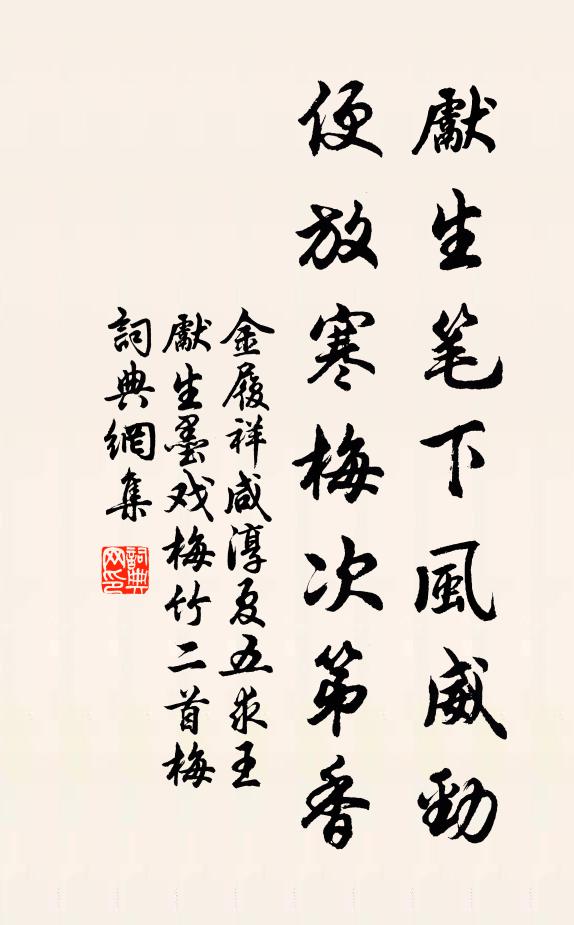 獻生笔下風威勁
便放寒梅次第香
金履祥咸淳夏五求王
獻生墨戏梅竹二首梅
詞典網集
詞典网印